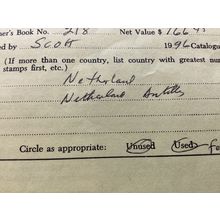 er's Book No. 218 Net Value $ 166 45
ed by Scott 1996 Catalogu
(If more than one country, list country with greatest nu
stamps first, etc.)
Netherland
Netherland Antilles
Circle as appropriate: Unused Used Fe